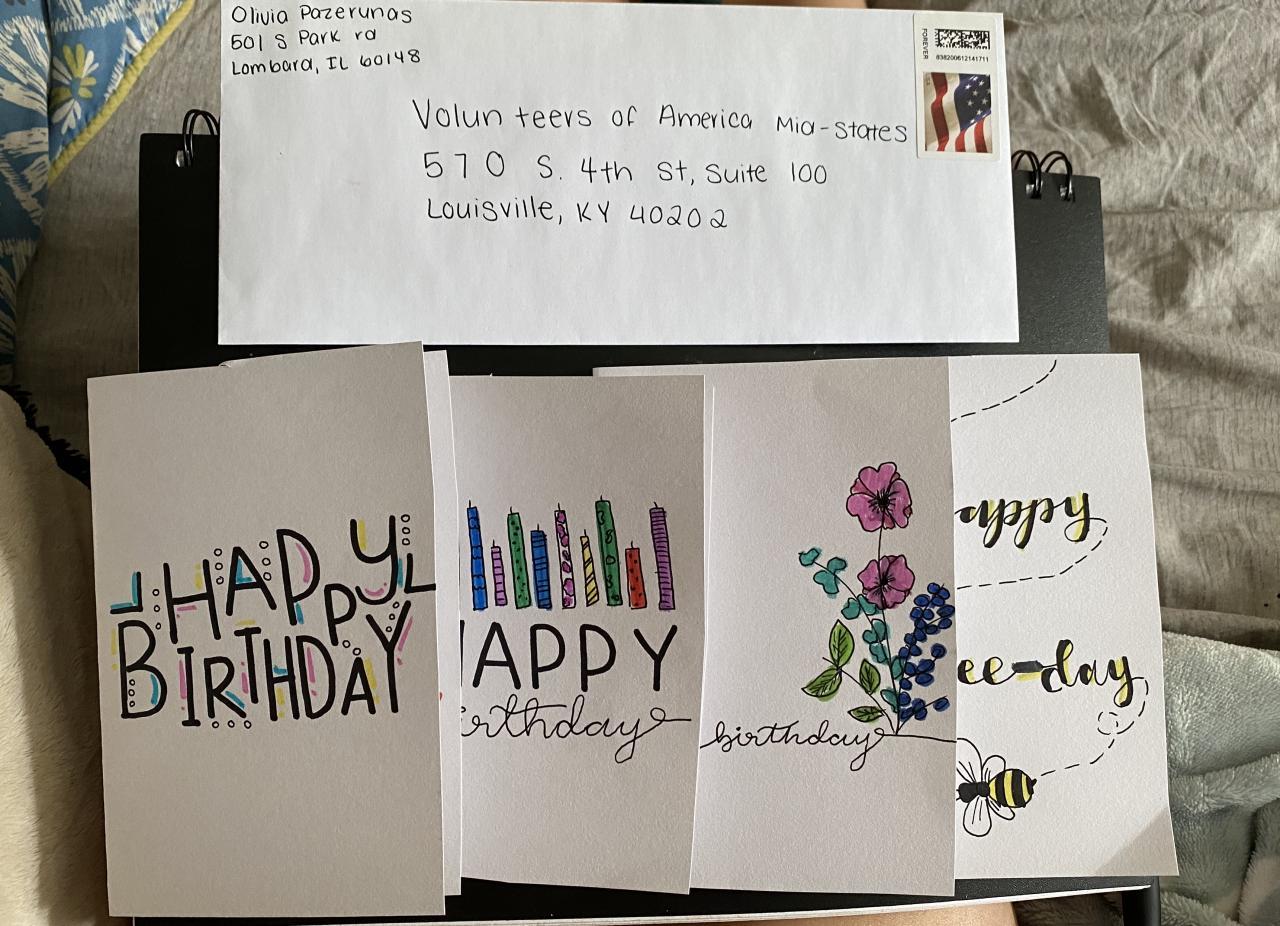 Olivia Pazerunas
501 S Park rd
Lombard, IL 60148
FOREVER
838200612141711
Volunteers of America Mid-States
570 S. 4th St, Suite 100
Louisville, KY 40202
HAPPY
BIRTHDAY
HAPPY
birthday
birthday
happy
ee-day